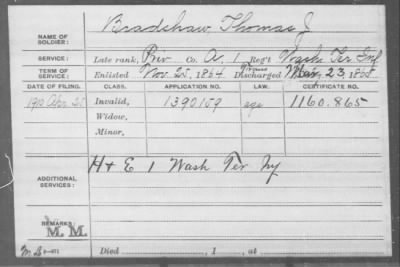 NAME OF SOLDIER: Bradshaw, Thomas J
SERVICE: Late rank, Priv Co. A, 1 Reg't Wash Ter Inf
TERM OF SERVICE: Enlisted Nov. 25, 1864, Discharged May 23, 1865
DATE OF FILING. CLASS. APPLICATION NO. LAW. CERTIFICATE NO.
Apr. Invalid, 1390159 age 1160.865
Widow,
Minor,
ADDITIONAL SERVICES: H + E 1 Wash Ter
REMARKS: M. M.
Died , 1 , at